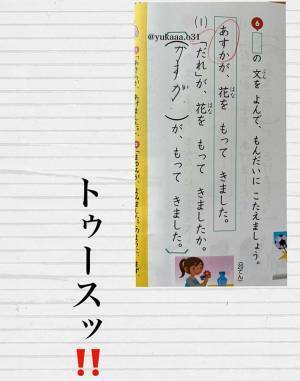 6 の 文を よんで、もんだいに こたえましょう。
あすかが、花を もって きました。
(1) 「だれ」が、花を もって きましたか。
(かすが)が、もって きました。
@yukaaa.o31
トゥースッ‼